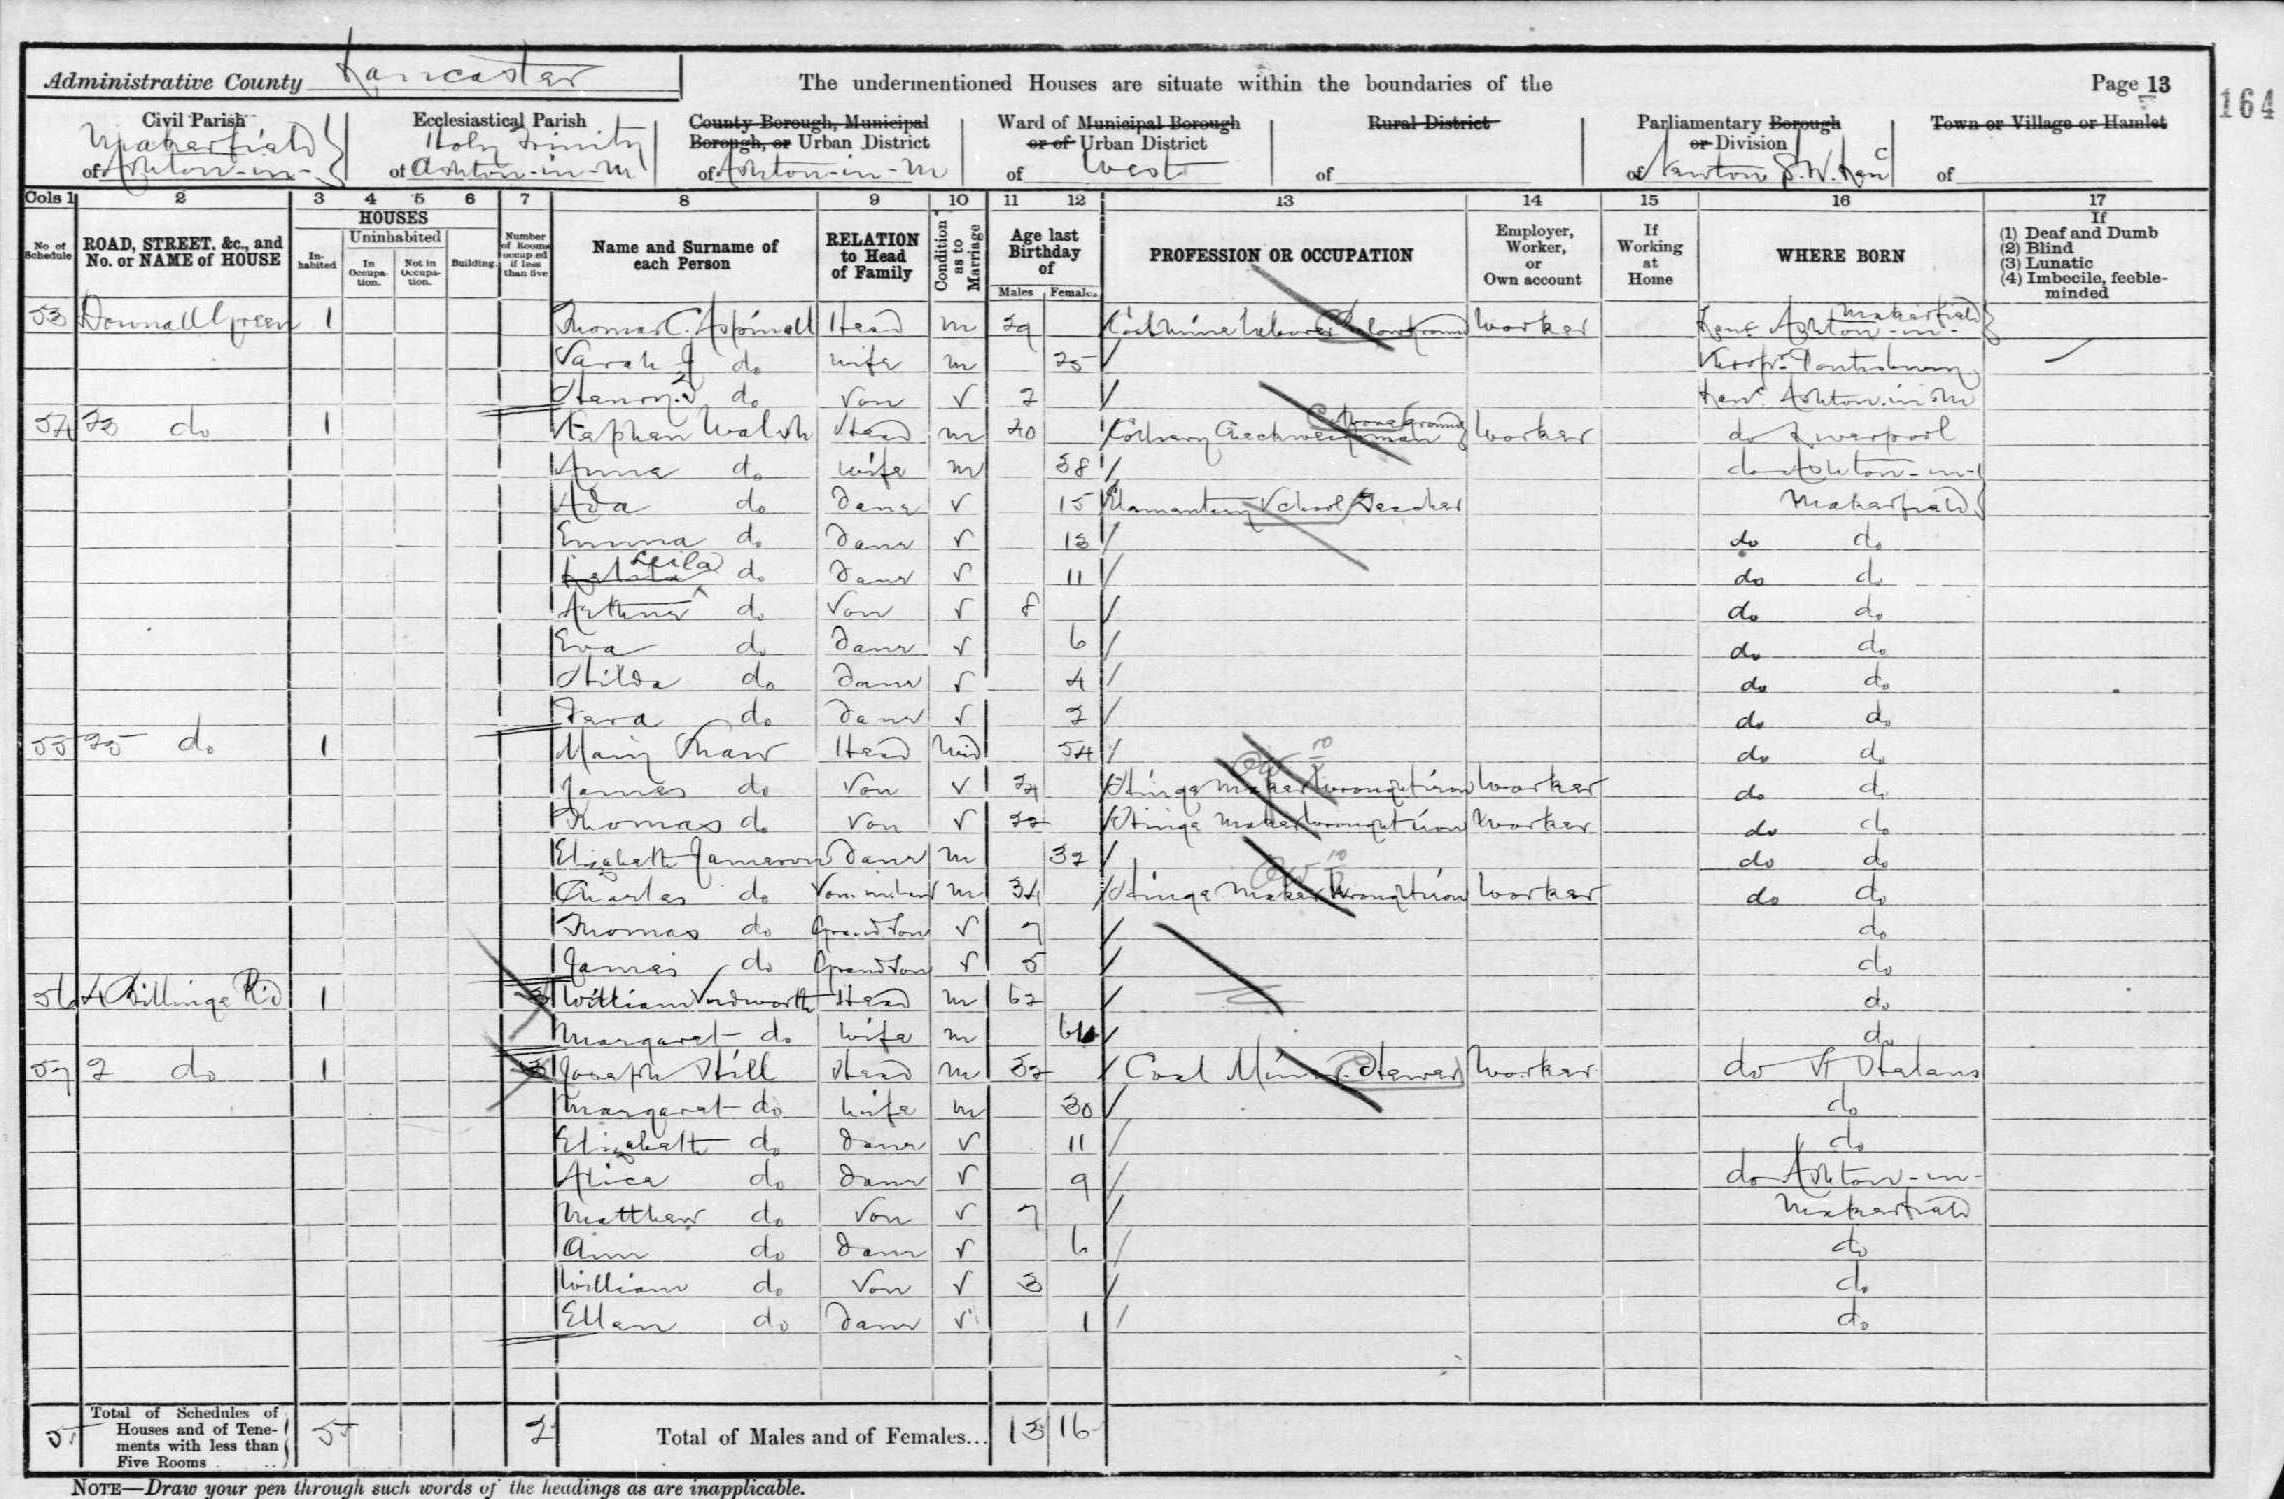 Administrative County Lancaster The undermentioned Houses are situate within the boundaries of the Page 13
164
Civil Parish Ecclesiastical Parish County Borough, Municipal Borough, or Urban District Ward of Municipal Borough or of Urban District Rural District Parliamentary Borough or Division Town or Village or Hamlet
Makerfield Holy Trinity
of Ashton-in- of Ashton-in-M of Ashton-in-M of West of of Newton S.W. Lanc of
Cols 1 2 3 4 5 6 7 8 9 10 11 12 13 14 15 16 17
No of Schedule ROAD, STREET, &c., and No. or NAME of HOUSE HOUSES Inhabited Uninhabited In Occupation. Not in Occupation. Building. Number of Rooms occupied if less than five Name and Surname of each Person RELATION to Head of Family Condition as to Marriage Age last Birthday of Males Females PROFESSION OR OCCUPATION Employer, Worker, or Own account If Working at Home WHERE BORN If (1) Deaf and Dumb (2) Blind (3) Lunatic (4) Imbecile, feeble-minded
53 Downall Green 1 Thomas C. Aspinall Head M 29 Coal Mine Labourer Belowground Worker Lanc Ashton-in-Makerfield
Sarah J do Wife M 25 Shrops Pontesbury
Henry do Son S 2 Lanc Ashton-in-M
54 23 do 1 Stephen Walsh Head M 40 Colliery Checkweighman Above ground Worker do Liverpool
Anna do Wife M 38 do Ashton-in-
Ada do Daur S 15 Elamantary School Teacher Makerfield
Emma do Daur S 13 do do
Leila do Daur S 11 do do
Arthur do Son S 8 do do
Eva do Daur S 6 do do
Hilda do Daur S 4 do do
do Daur S 2 do do
55 25 do 1 Mary Shaw Head Wid 54 do do
James do Son S 24 Hinge Maker Wrought iron Worker do do
Thomas do Son S 22 Hinge Maker Wrought iron Worker do do
Elizabeth Jameson Daur M 32 do do
Charles do Son in law M 34 Hinge Maker Wrought iron Worker do do
Thomas do Grand Son S 7 do
James do Grand Son S 5 do
56 4 Billinge Rd 1 3 William Unsworth Head M 62 do
Margaret do Wife M do
57 2 do 1 3 Joseph Hill Head M 32 Coal Miner Hewer Worker do St Helens
Margaret do Wife M 30 do
Elizabeth do Daur S 11 do
Alice do Daur S 9 do Ashton-in-
Matthew do Son S 7 Makerfield
Ann do Daur S 6 do
William do Son S 3 do
Ellen do Daur S 1 do
5 Total of Schedules of Houses and of Tenements with less than Five Rooms 5 2 Total of Males and of Females... 13 16
NOTE—Draw your pen through such words of the headings as are inapplicable.